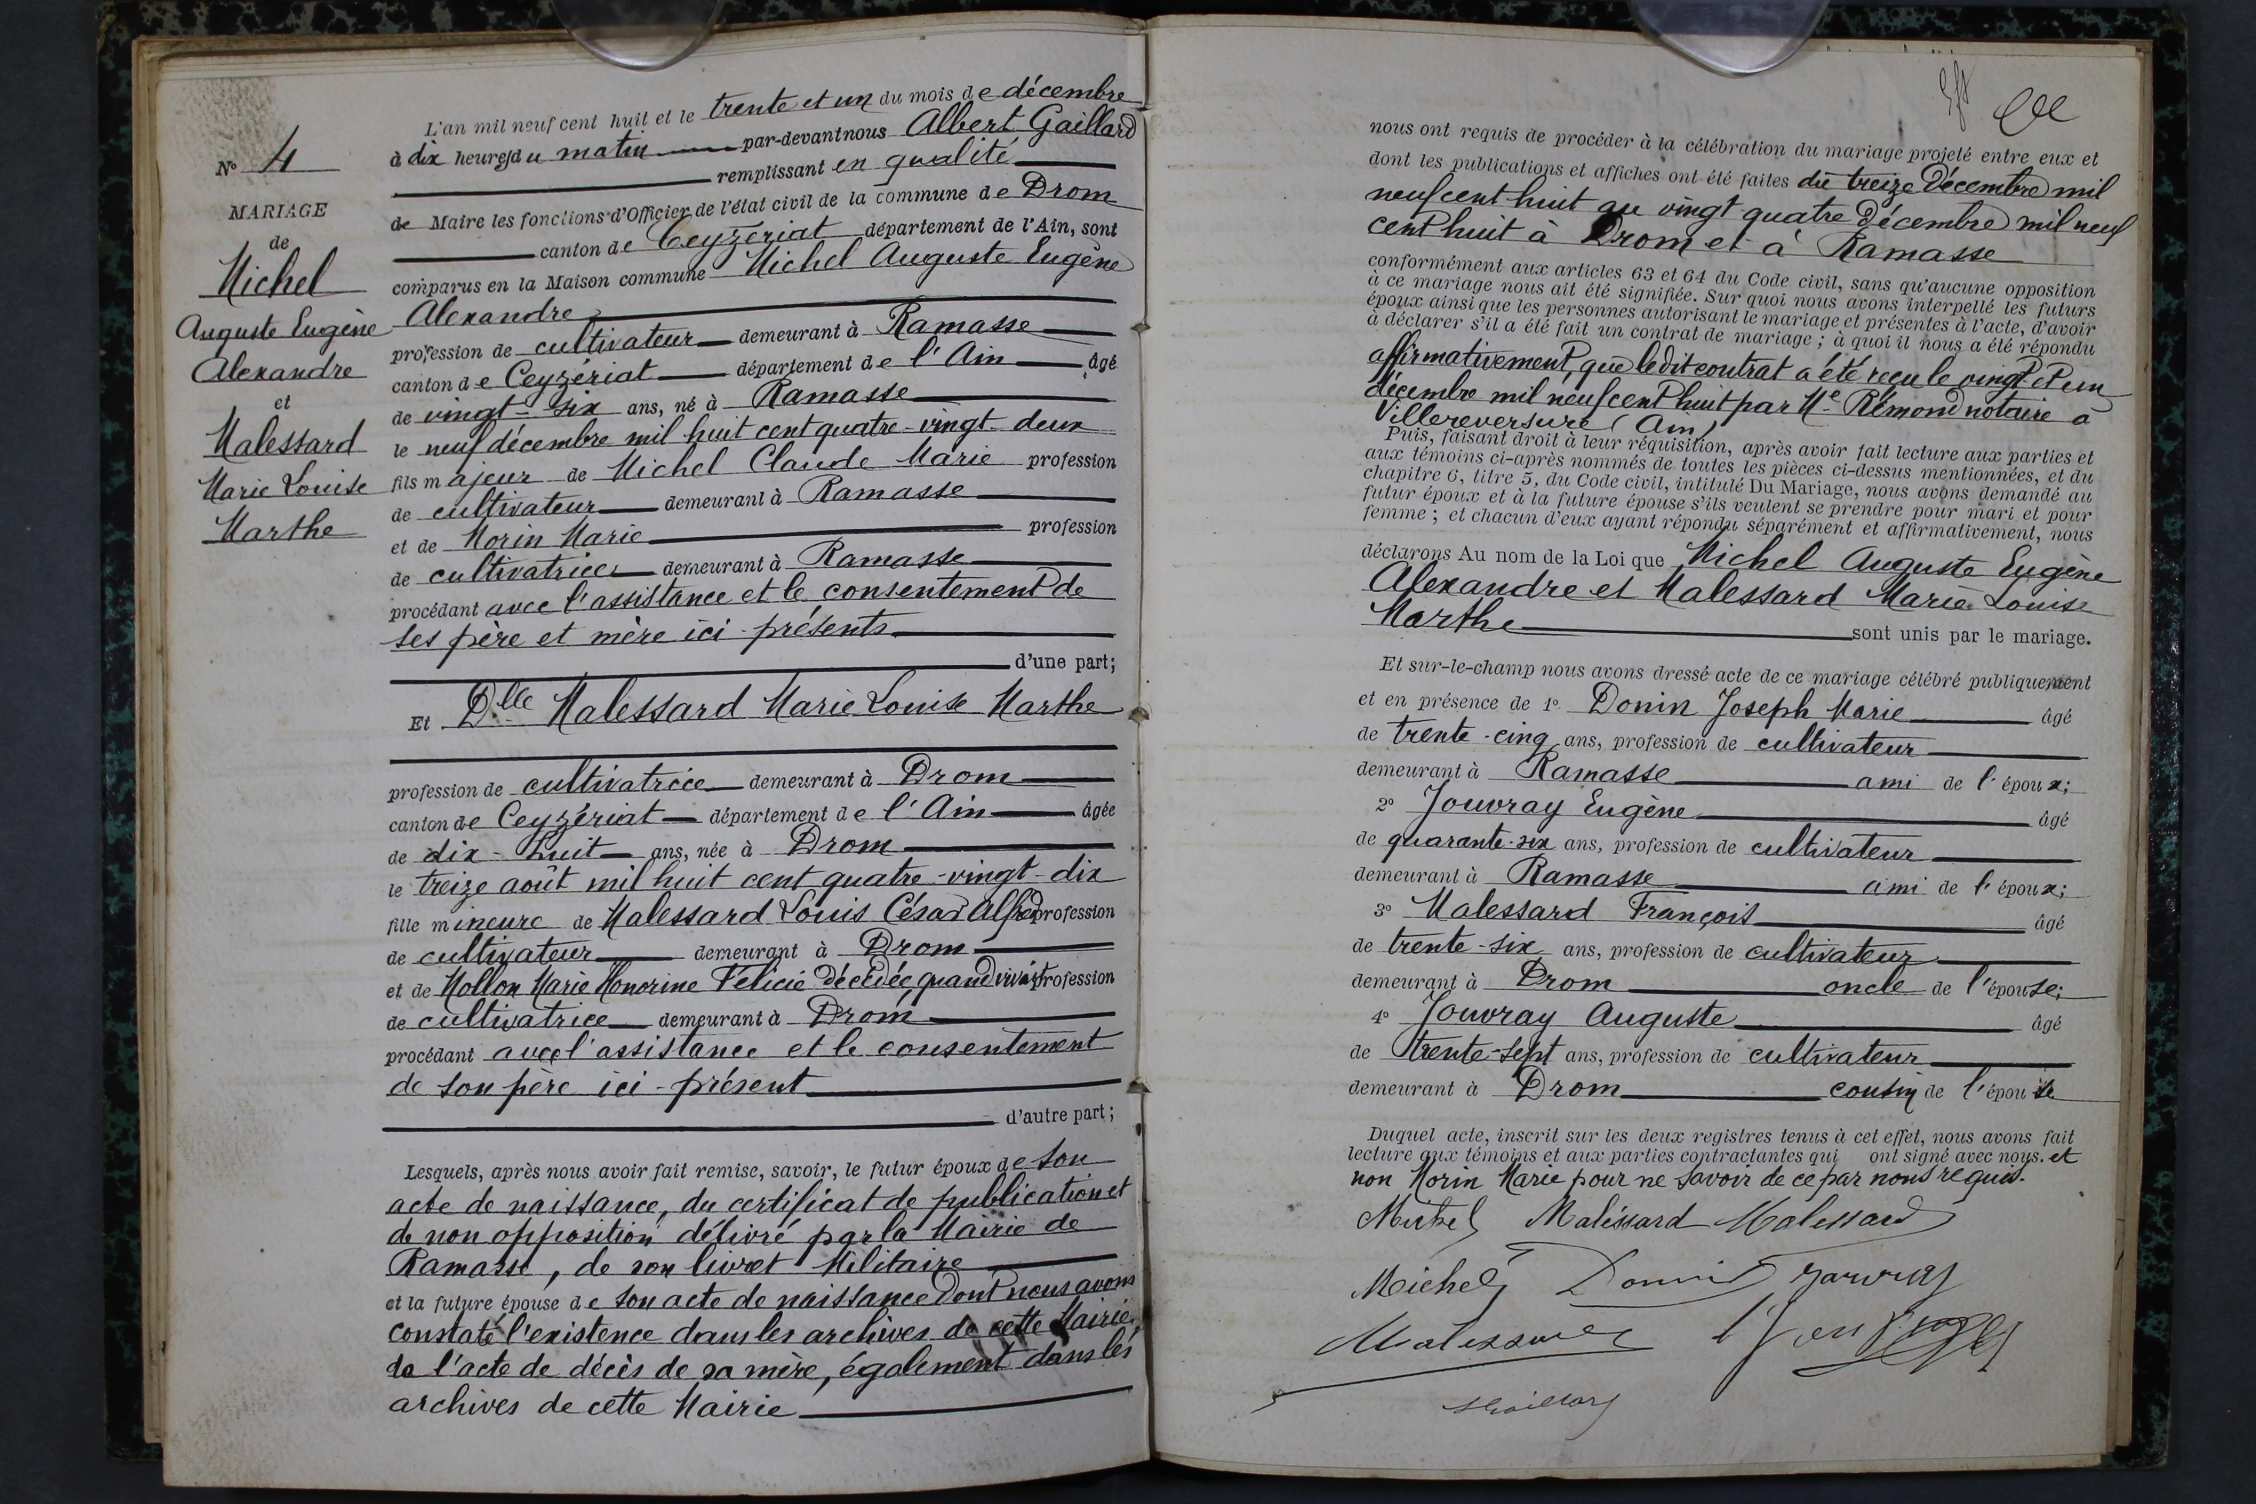 N° 4
MARIAGE
de
Michel
Auguste Eugène
Alexandre
et
Malessard
Marie Louise
Marthe
L'an mil neuf cent huit et le trente et un du mois de décembre
à dix heures du matin par-devant nous Albert Gaillard
remplissant en qualité
de Maire les fonctions d'Officier de l'état civil de la commune de Drom
canton de Ceyzériat département de l'Ain, sont
comparus en la Maison commune Michel Auguste Eugène
Alexandre
profession de cultivateur demeurant à Ramasse
canton de Ceyzériat département de l'Ain âgé
de vingt-six ans, né à Ramasse
le neuf décembre mil huit cent quatre-vingt-deux
fils majeur de Michel Claude Marie profession
de cultivateur demeurant à Ramasse
et de Morin Marie profession
de cultivatrice demeurant à Ramasse
procédant avec l'assistance et le consentement de
ses père et mère ici-présents
d'une part;
Et Dlle Malessard Marie Louise Marthe
profession de cultivatrice demeurant à Drom
canton de Ceyzériat département de l'Ain âgée
de dix-huit ans, née à Drom
le treize août mil huit cent quatre-vingt-dix
fille mineure de Malessard Louis César Alfred profession
de cultivateur demeurant à Drom
et de Mollon Marie Honorine Félicie décédée, quand vivait profession
de cultivatrice demeurant à Drom
procédant avec l'assistance et le consentement
de son père ici-présent
d'autre part;
Lesquels, après nous avoir fait remise, savoir, le futur époux de son
acte de naissance, du certificat de publication et
de non opposition délivré par la Mairie de
Ramasse, de son livret Militaire
et la future épouse de son acte de naissance dont nous avons
constaté l'existence dans les archives de cette Mairie,
de l'acte de décès de sa mère, également dans les
archives de cette Mairie
nous ont requis de procéder à la célébration du mariage projeté entre eux et
dont les publications et affiches ont été faites du treize Décembre mil
neuf cent huit au vingt quatre Décembre mil neuf
cent huit à Drom et à Ramasse
conformément aux articles 63 et 64 du Code civil, sans qu'aucune opposition
à ce mariage nous ait été signifiée. Sur quoi nous avons interpellé les futurs
époux ainsi que les personnes autorisant le mariage et présentes à l'acte, d'avoir
à déclarer s'il a été fait un contrat de mariage; à quoi il nous a été répondu
affirmativement, que ledit contrat a été reçu le vingt et un
décembre mil neuf cent huit par Me Rémond notaire à
Villereversure (Ain)
Puis, faisant droit à leur réquisition, après avoir fait lecture aux parties et
aux témoins ci-après nommés de toutes les pièces ci-dessus mentionnées, et du
chapitre 6, titre 5, du Code civil, intitulé Du Mariage, nous avons demandé au
futur époux et à la future épouse s'ils veulent se prendre pour mari et pour
femme; et chacun d'eux ayant répondu séparément et affirmativement, nous
déclarons Au nom de la Loi que Michel Auguste Eugène
Alexandre et Malessard Marie Louise
Marthe sont unis par le mariage.
Et sur-le-champ nous avons dressé acte de ce mariage célébré publiquement
et en présence de 1° Donin Joseph Marie âgé
de trente-cinq ans, profession de cultivateur
demeurant à Ramasse ami de l'époux;
2° Jouvray Eugène âgé
de quarante-six ans, profession de cultivateur
demeurant à Ramasse ami de l'époux;
3° Malessard François âgé
de trente-six ans, profession de cultivateur
demeurant à Drom oncle de l'épouse;
4° Jouvray Auguste âgé
de trente-sept ans, profession de cultivateur
demeurant à Drom cousin de l'épouse
Duquel acte, inscrit sur les deux registres tenus à cet effet, nous avons fait
lecture aux témoins et aux parties contractantes qui ont signé avec nous. et
non Morin Marie pour ne savoir de ce par nous requis.
Michel Malessard Malessard
Michel Donin